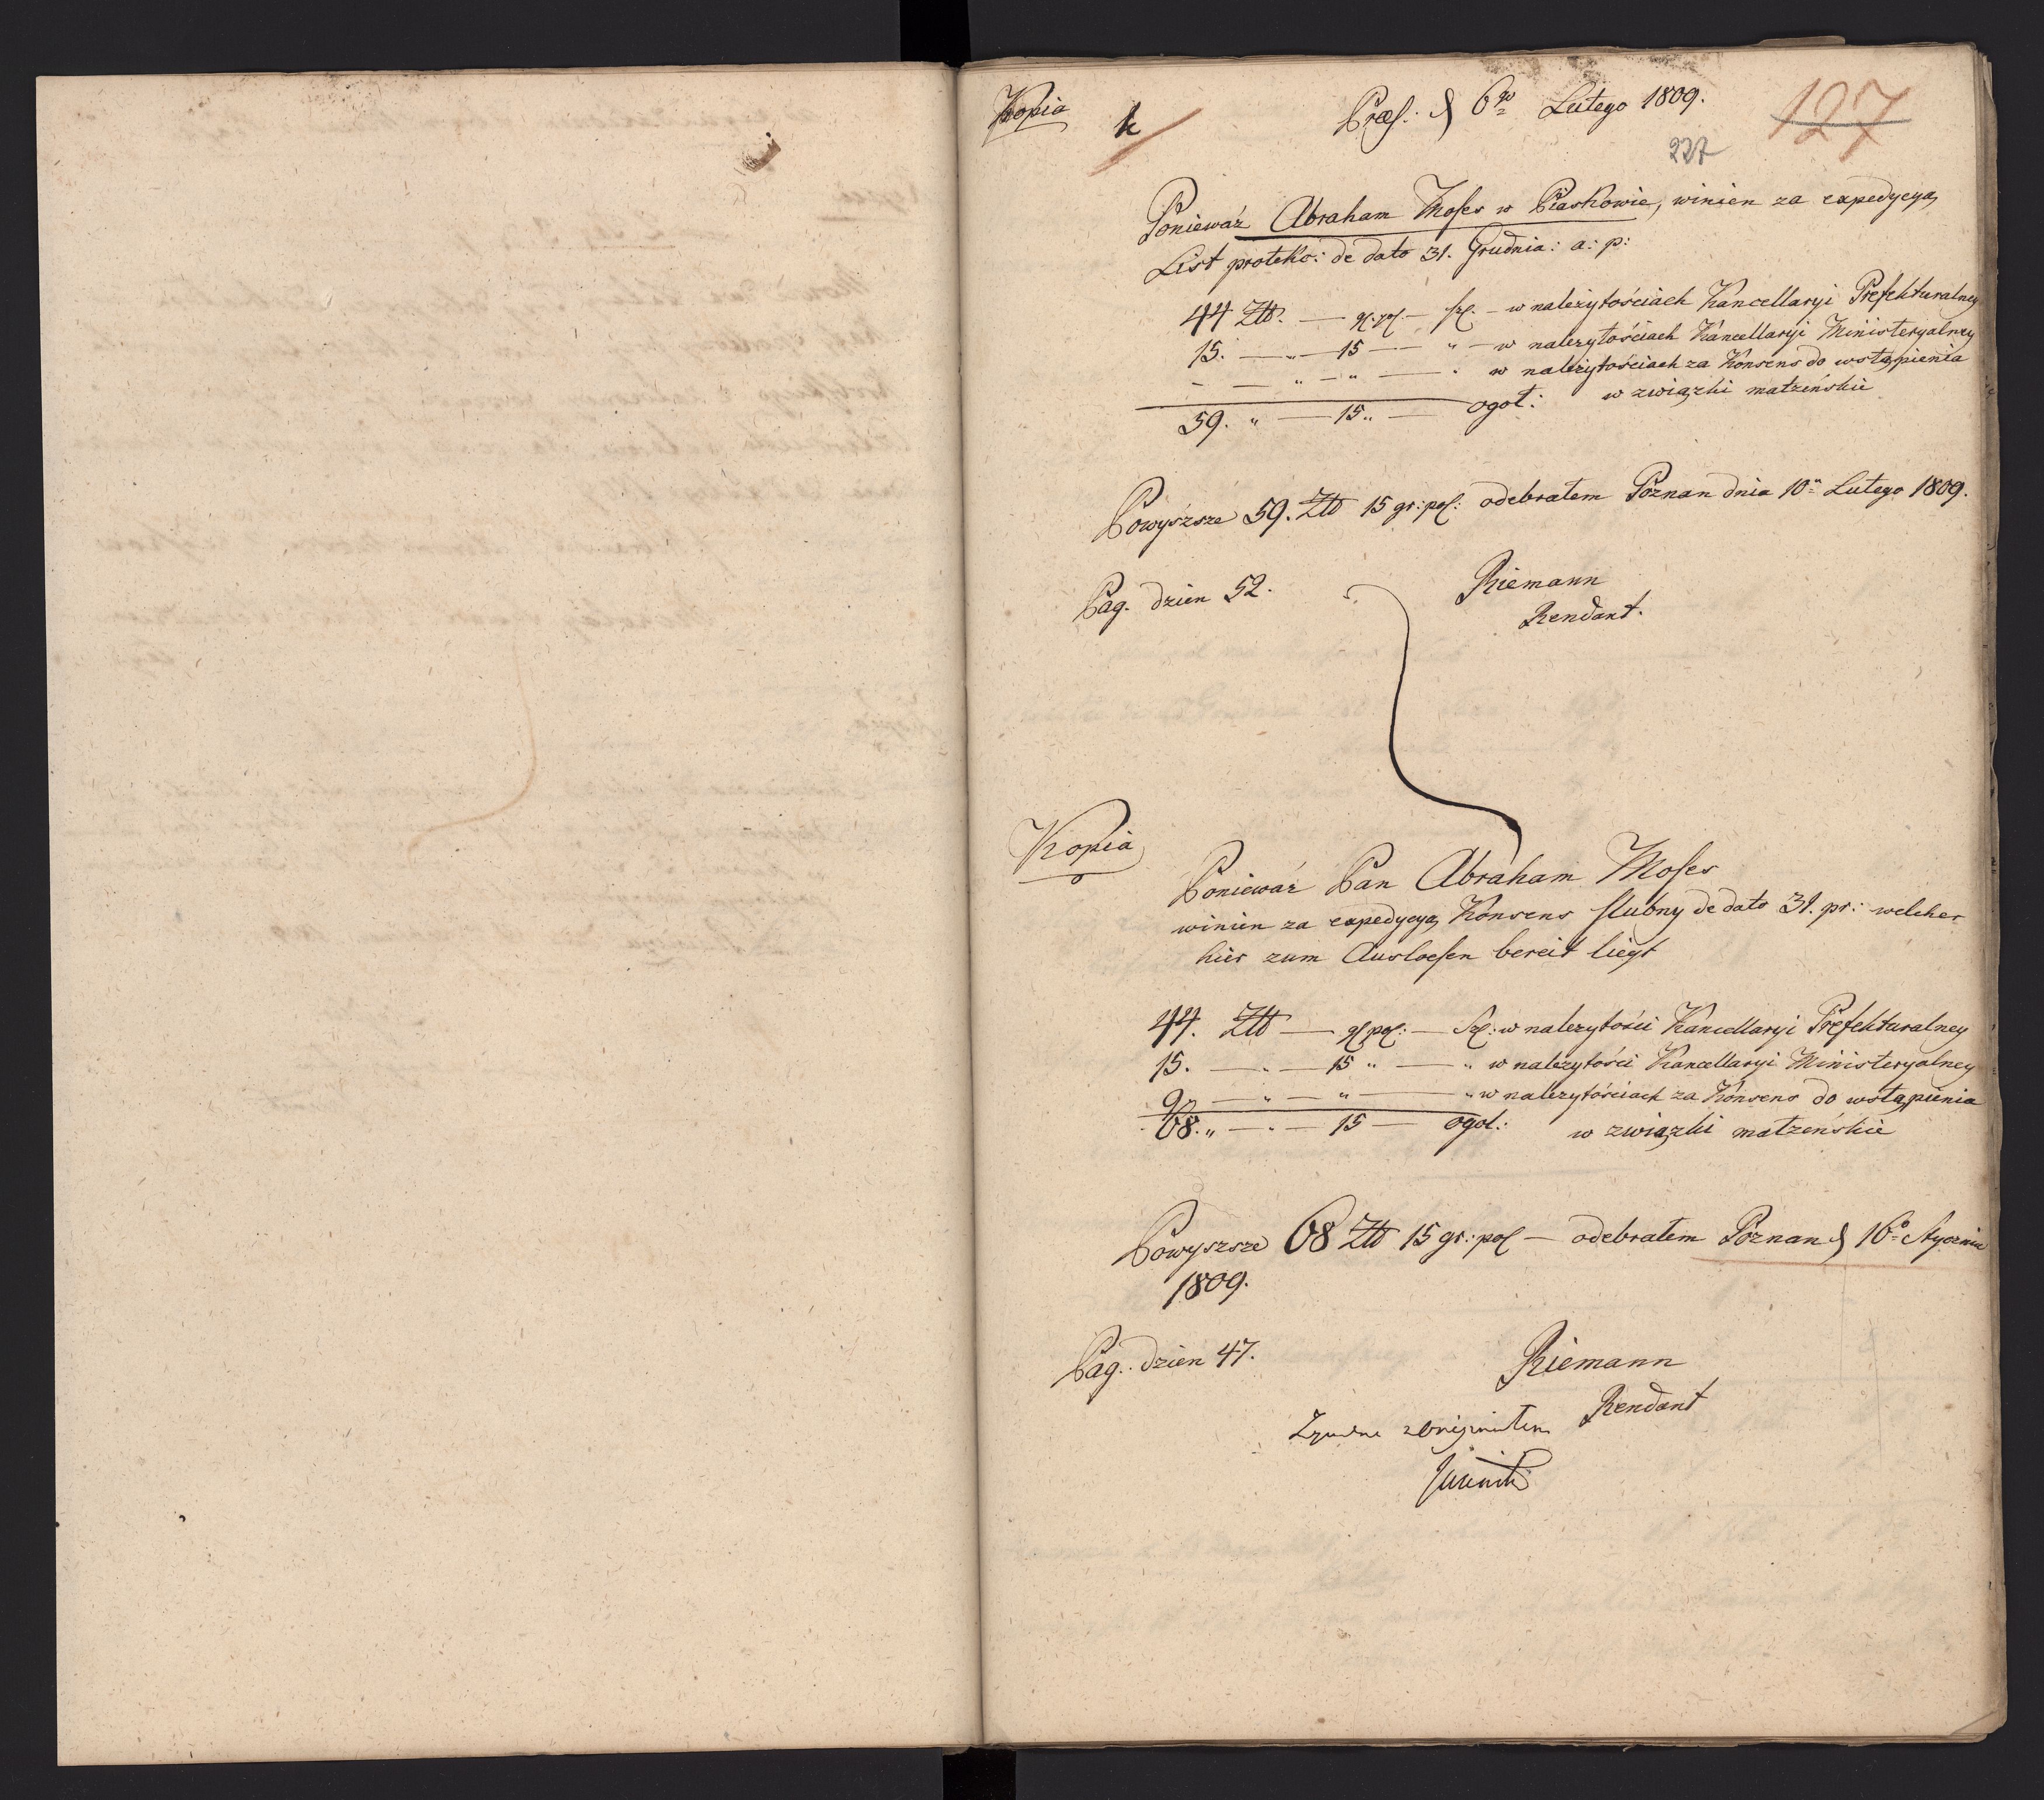 Kopia
k
Præs: d 6go Lutego 1809.
127
227
Poniewáz Abraham Moses w Piaskowie, winien za expedycyą
List proteko: de dato 31. Grudnia: a: p:
44 Złt. — gl. pol. — fz. — w należytościach Kancellaryi Prefekturalney
15. — „ — 15 — „ — w należytościach Kancellaryi Ministeryalney
- — „ — „ — „ w należytościach za Konsens do wstąpienia
w związki matzeńskie
59. „ — 15 „ — ogoł:
Powyższe 59. Złt 15 gr: pol: odebratem Poznan dnia 10„ Lutego 1809.
Pag. dzien 52.
Riemann
Rendant.
Kopia
Poniewáz Pan Abraham Moses
winien za expedycyą Konsens slubny de dato 31. pr: welcher
hier zum Ausloesen bereit liegt
44. Złt — gl pol: — fz: w należytości Kancellaryi Prefekturalney
15. — „ — 15 „ — „ w należytości Kancellaryi Ministeryalney
9 — „ — „ — „ w należytościach za Konsens do wstąpienia
68. „ — „ — 15 — ogol: w związki matzeńskie
Powyszsze 68 Złt 15 gr: pol — odebratem Poznan d 16o Stycznia
1809.
Pag. dzien 47.
Riemann
Rendant
Zgodne z originałem